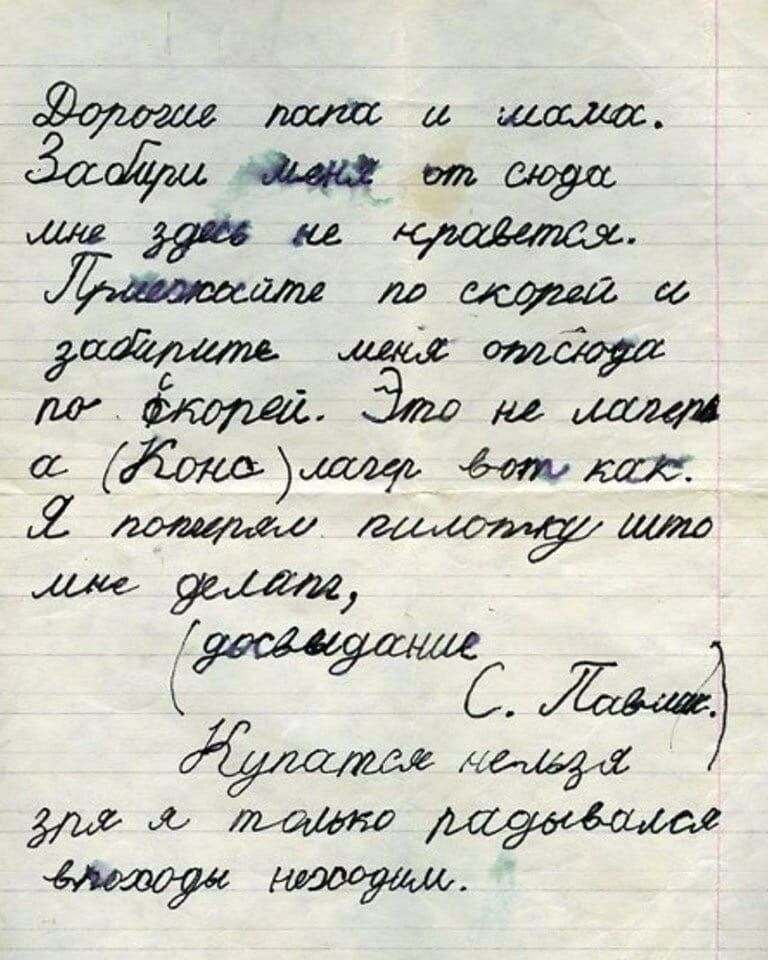 Дорогие папа и мама.
Забири меня от сюда
мне здесь не нравется.
Приезжайте по скорей и
забирите меня отсюда
по скорей. Это не лагерь
а (Конс) лагер вот как.
Я потерял пилотку што
мне делат,
(досвыдание
С. Павлик.)
Купатся нельзя
зря я только радывался
впоходы неходим.